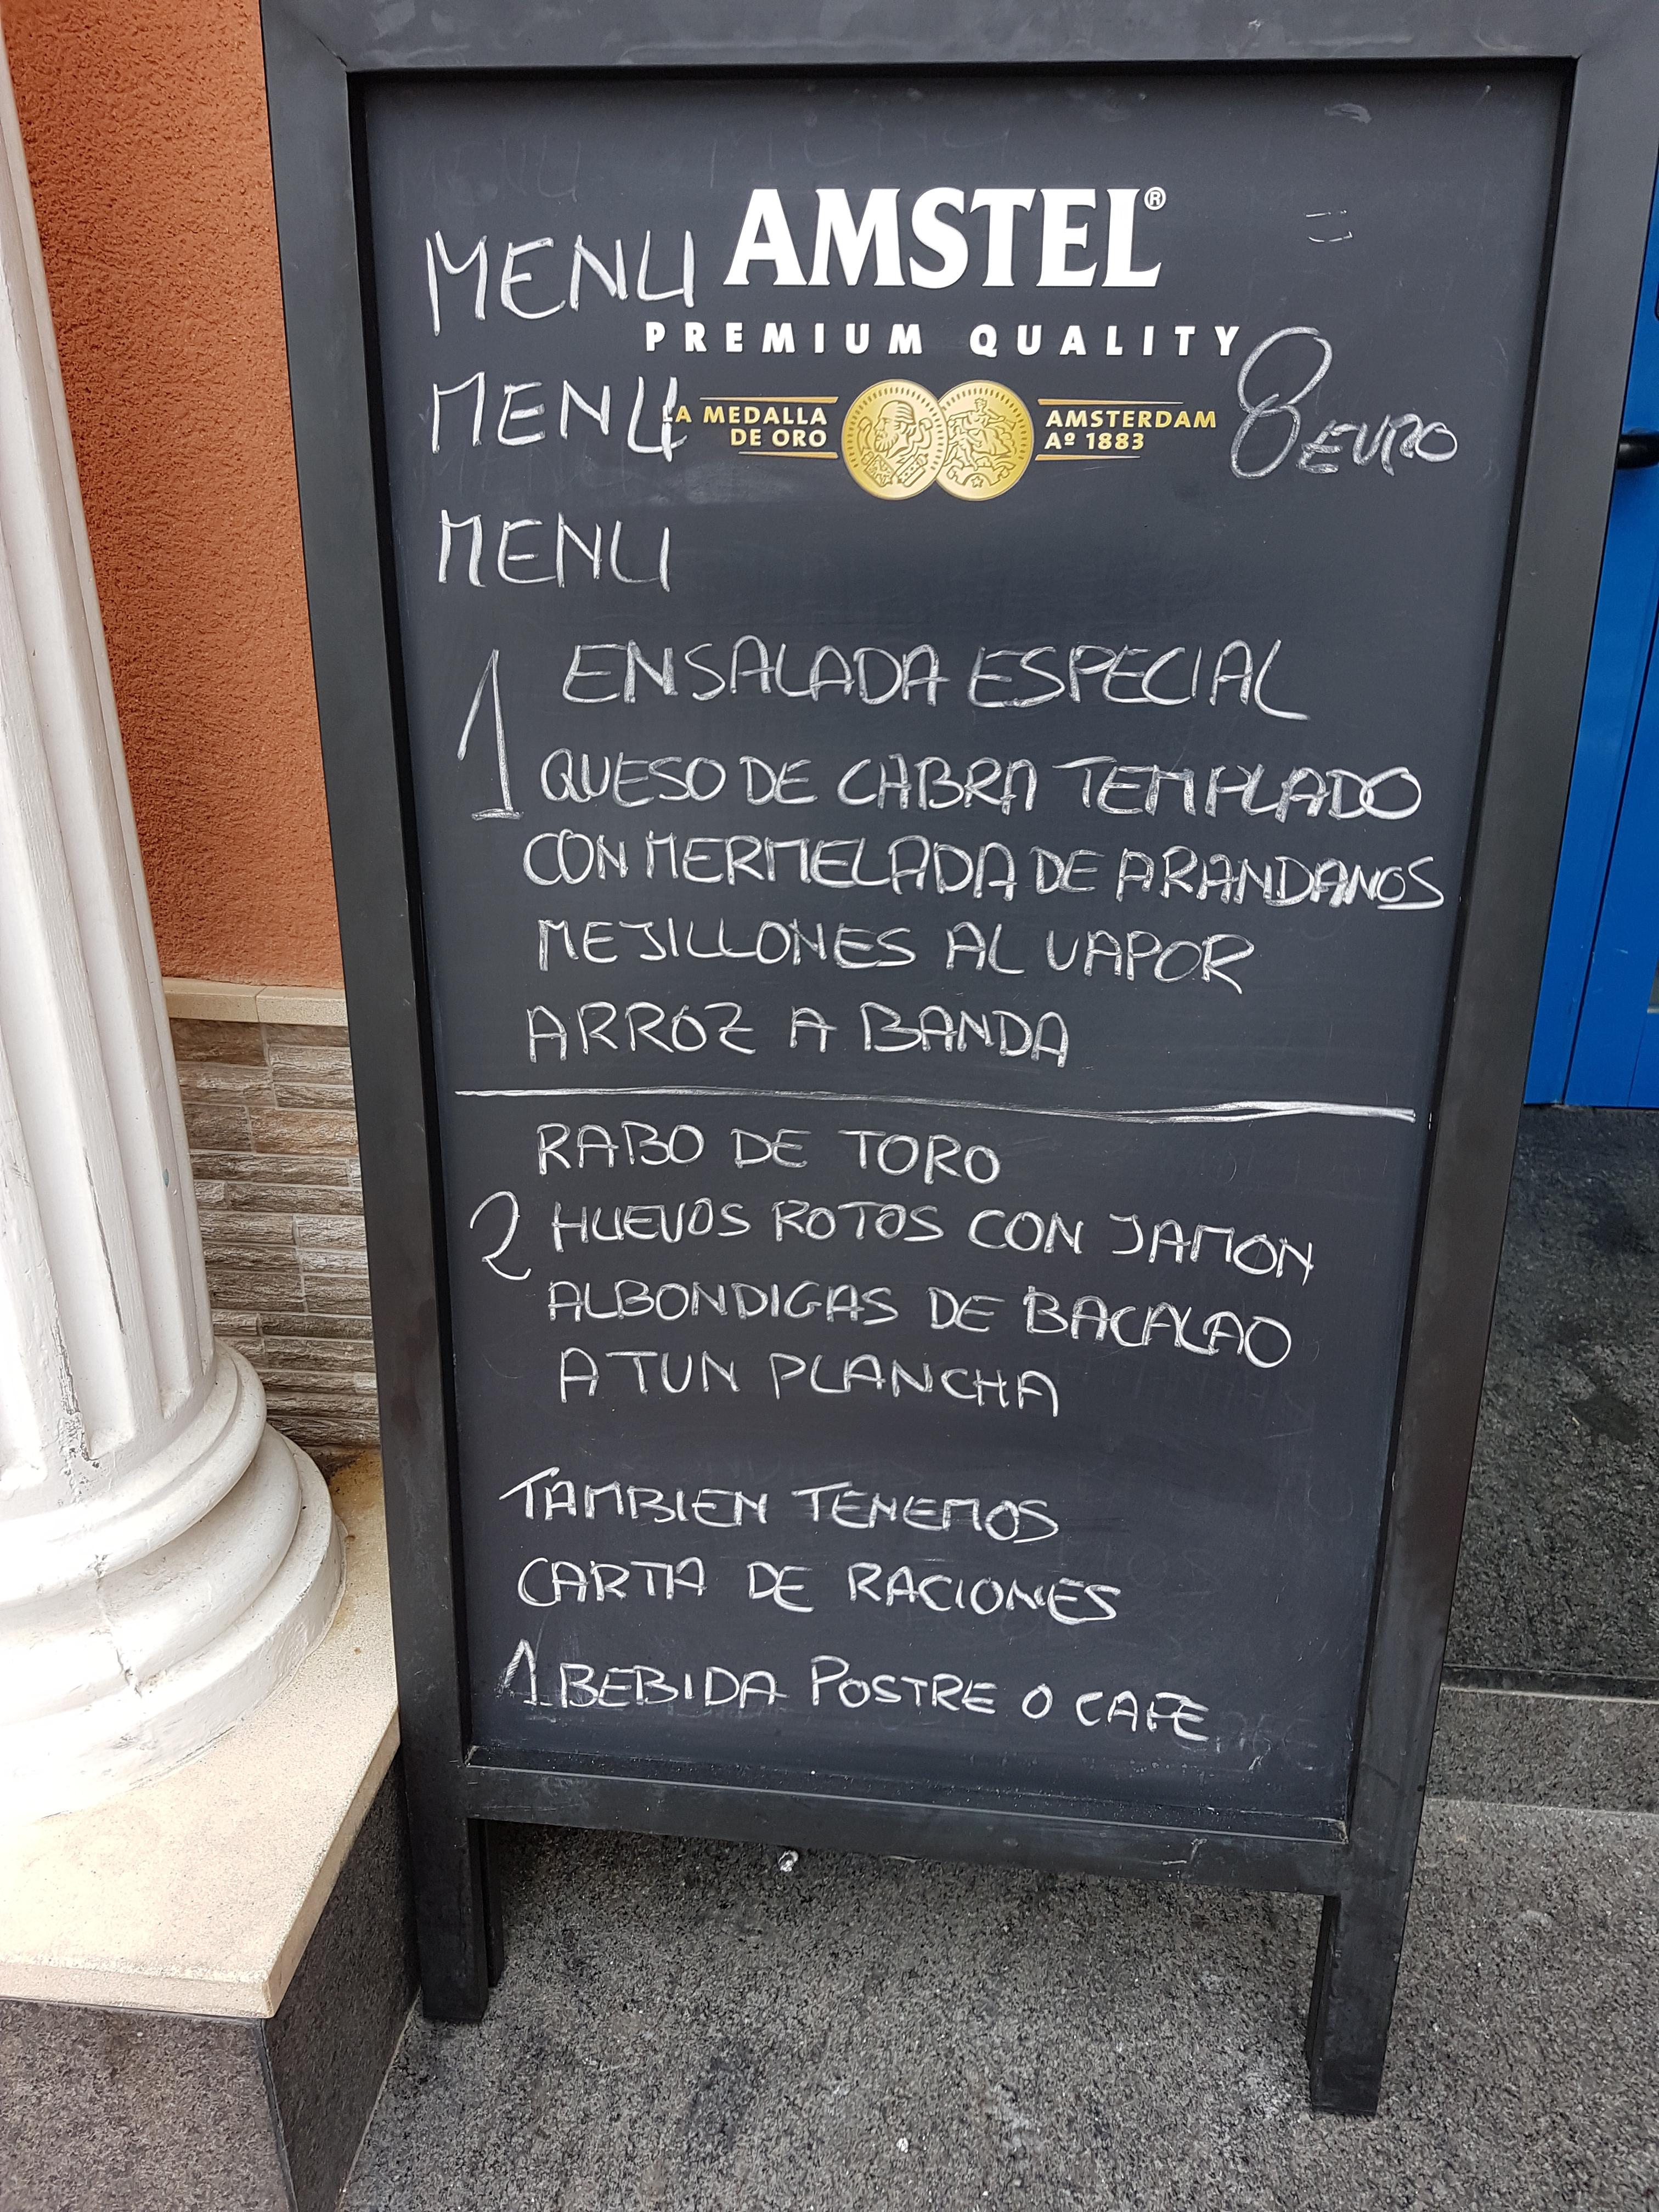 AMSTEL®
MENU
PREMIUM QUALITY
MENU
LA MEDALLA
DE ORO
AMSTERDAM
Aº 1883
8 EURO
MENU
1 ENSALADA ESPECIAL
QUESO DE CABRA TEMPLADO
CON MERMELADA DE ARANDANOS
MEJILLONES AL VAPOR
ARROZ A BANDA
RABO DE TORO
2 HUEVOS ROTOS CON JAMON
ALBONDIGAS DE BACALAO
ATUN PLANCHA
TAMBIEN TENEMOS
CARTA DE RACIONES
1 BEBIDA POSTRE O CAFE